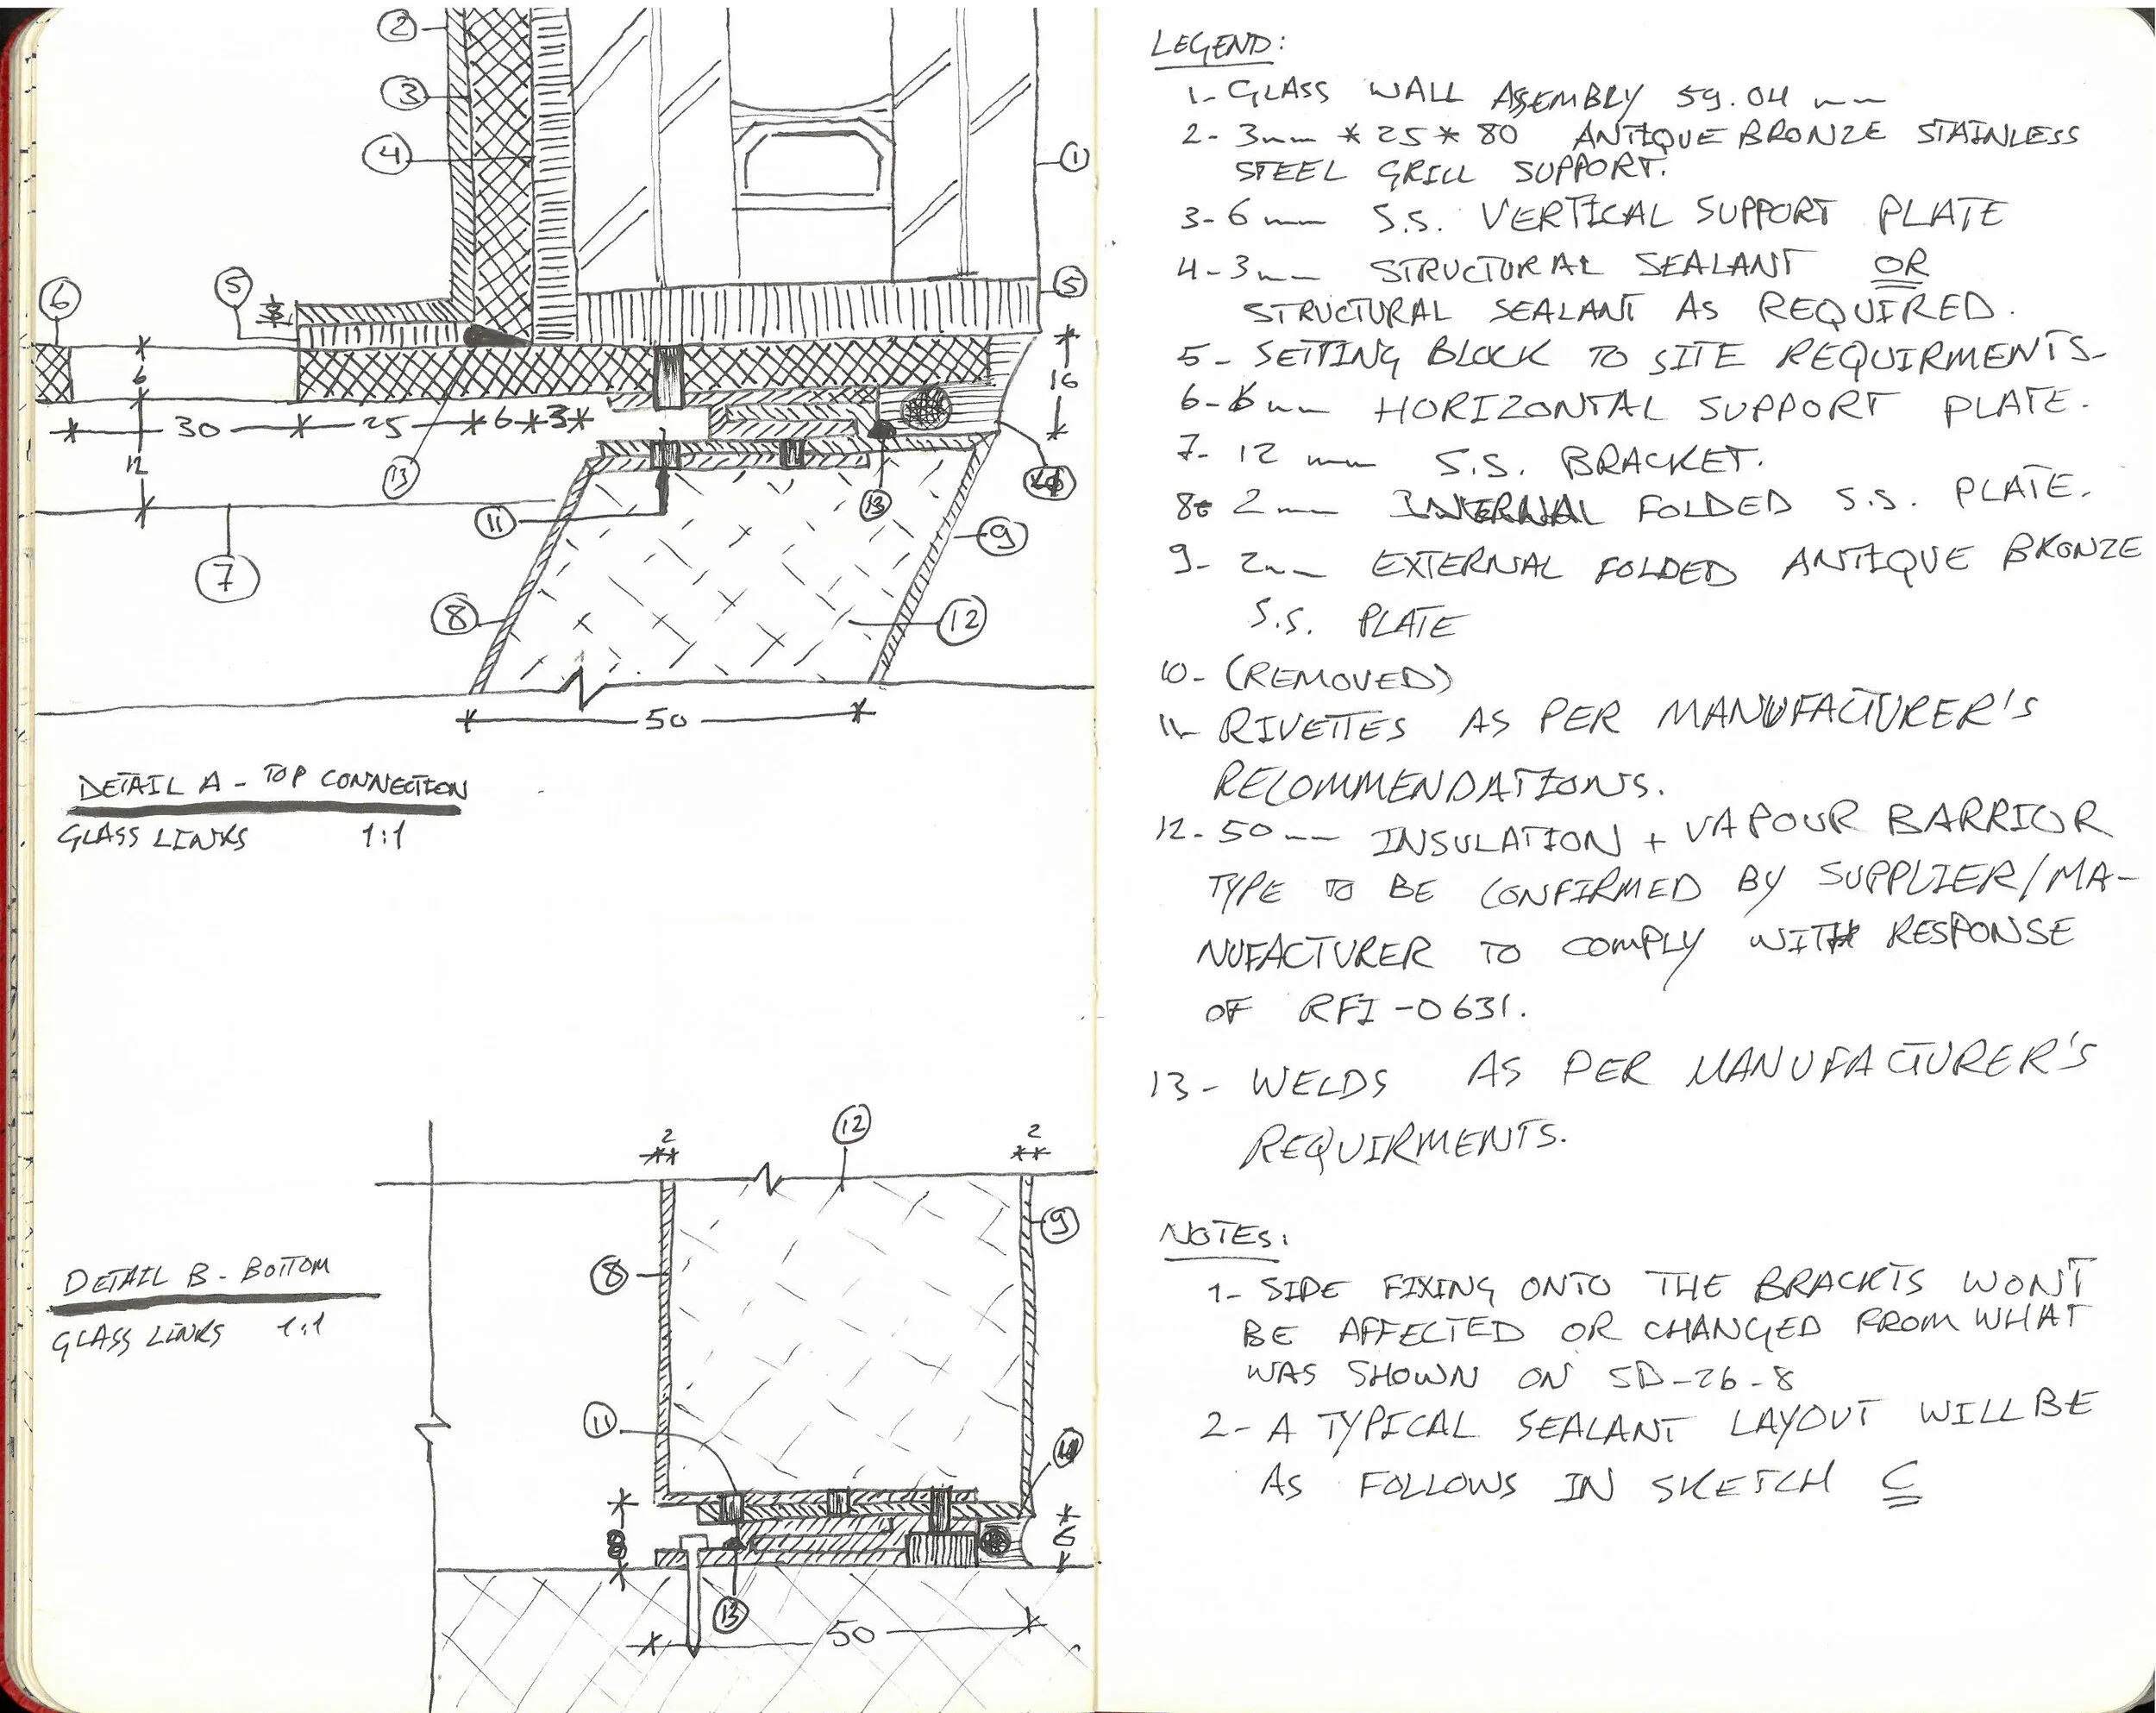 2
3
4
1
5
5
6
3
6
16
30
25
6
3
12
13
11
13
9
7
8
12
50
DETAIL A - TOP CONNECTION
GLASS LINKS 1:1
12
2
2
9
8
DETAIL B - BOTTOM
GLASS LINKS 1:1
11
8
6
13
50
LEGEND:
1- GLASS WALL ASSEMBLY 59.04 mm
2- 3mm * 25 * 80 ANTIQUE BRONZE STAINLESS
STEEL GRILL SUPPORT.
3- 6 mm S.S. VERTICAL SUPPORT PLATE
4- 3mm STRUCTURAL SEALANT OR
STRUCTURAL SEALANT AS REQUIRED.
5- SETTING BLOCK TO SITE REQUIRMENTS-
6- 6mm HORIZONTAL SUPPORT PLATE.
7- 12 mm S.S. BRACKET.
8- 2mm INTERNAL FOLDED S.S. PLATE.
9- 2mm EXTERNAL FOLDED ANTIQUE BRONZE
S.S. PLATE
10- (REMOVED)
11- RIVETTES AS PER MANUFACTURER'S
RECOMMENDATIONS.
12- 50mm INSULATION + VAPOUR BARRIOR
TYPE TO BE CONFIRMED BY SUPPLIER/MA-
NUFACTURER TO COMPLY WITH RESPONSE
OF RFI-0631.
13- WELDS AS PER MANUFACTURER'S
REQUIRMENTS.
NOTES:
1- SIDE FIXING ONTO THE BRACKTS WON'T
BE AFFECTED OR CHANGED FROM WHAT
WAS SHOWN ON SD-26-8
2- A TYPICAL SEALANT LAYOUT WILL BE
AS FOLLOWS IN SKETCH C